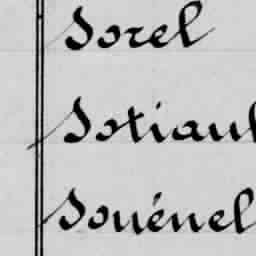 Sorel
Sotiaul
Souénel